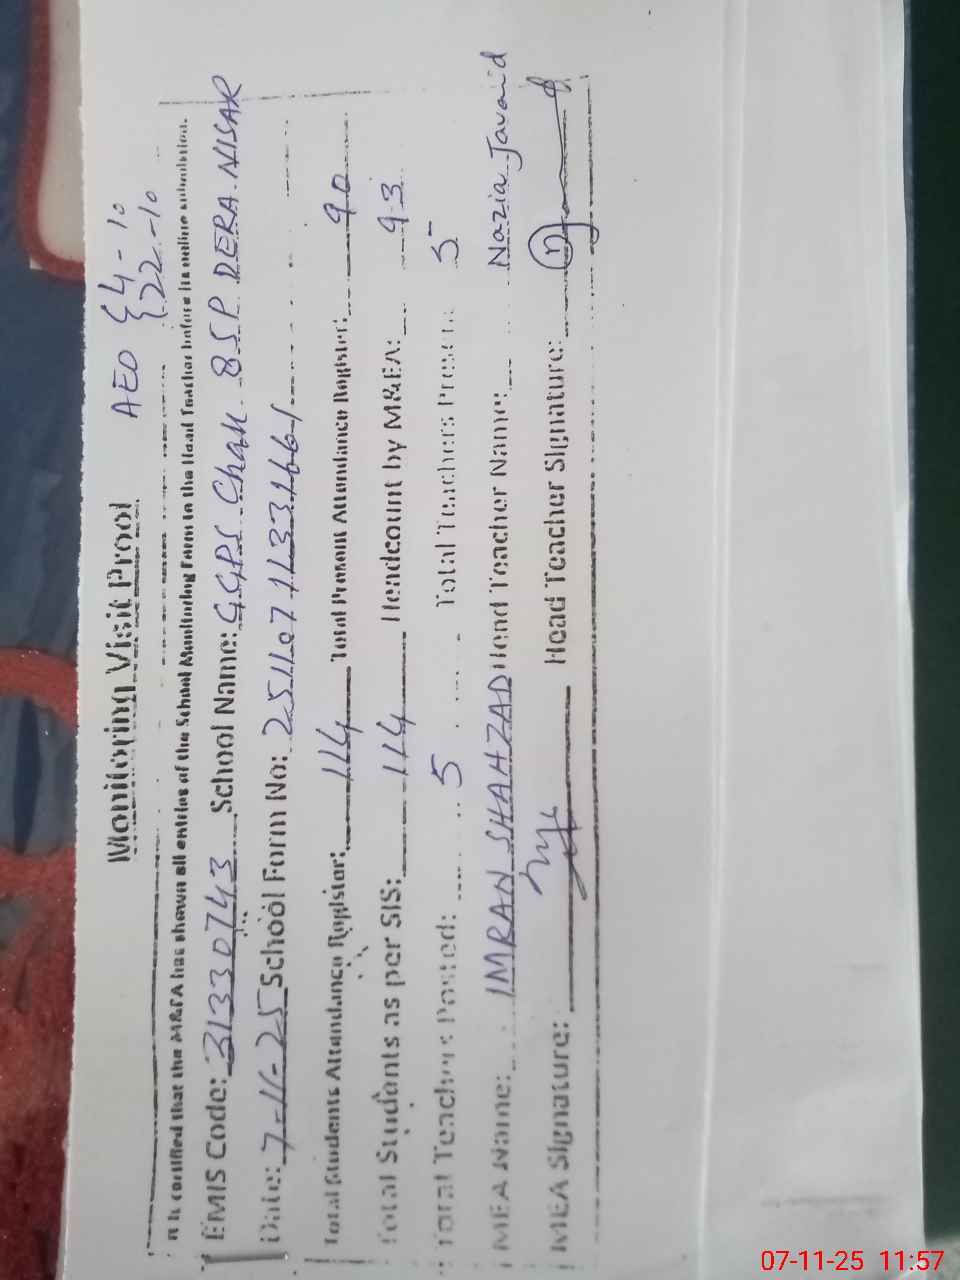 Monitoring Visit Proof
AEO { 4-10
{ 22-10
It is certified that the M&EA has shown all entries of the School Monitoring Form to the Head Teacher before its online submission.
EMIS Code: 31330743 School Name: GGPS Chak 85P DERA NISAR
Date: 7-11-25 School Form No: 
Total Students Attendance Register: 114 Total Present Attendance Register: 90
Total Students as per SIS: 114 Headcount by M&EA: 93
Total Teachers Posted: 5 Total Teachers Present: 5
MEA Name: IMRAN SHAHZAD Head Teacher Name: Nazia Javaid
MEA Signature: Head Teacher Signature:
07-11-25 11:57